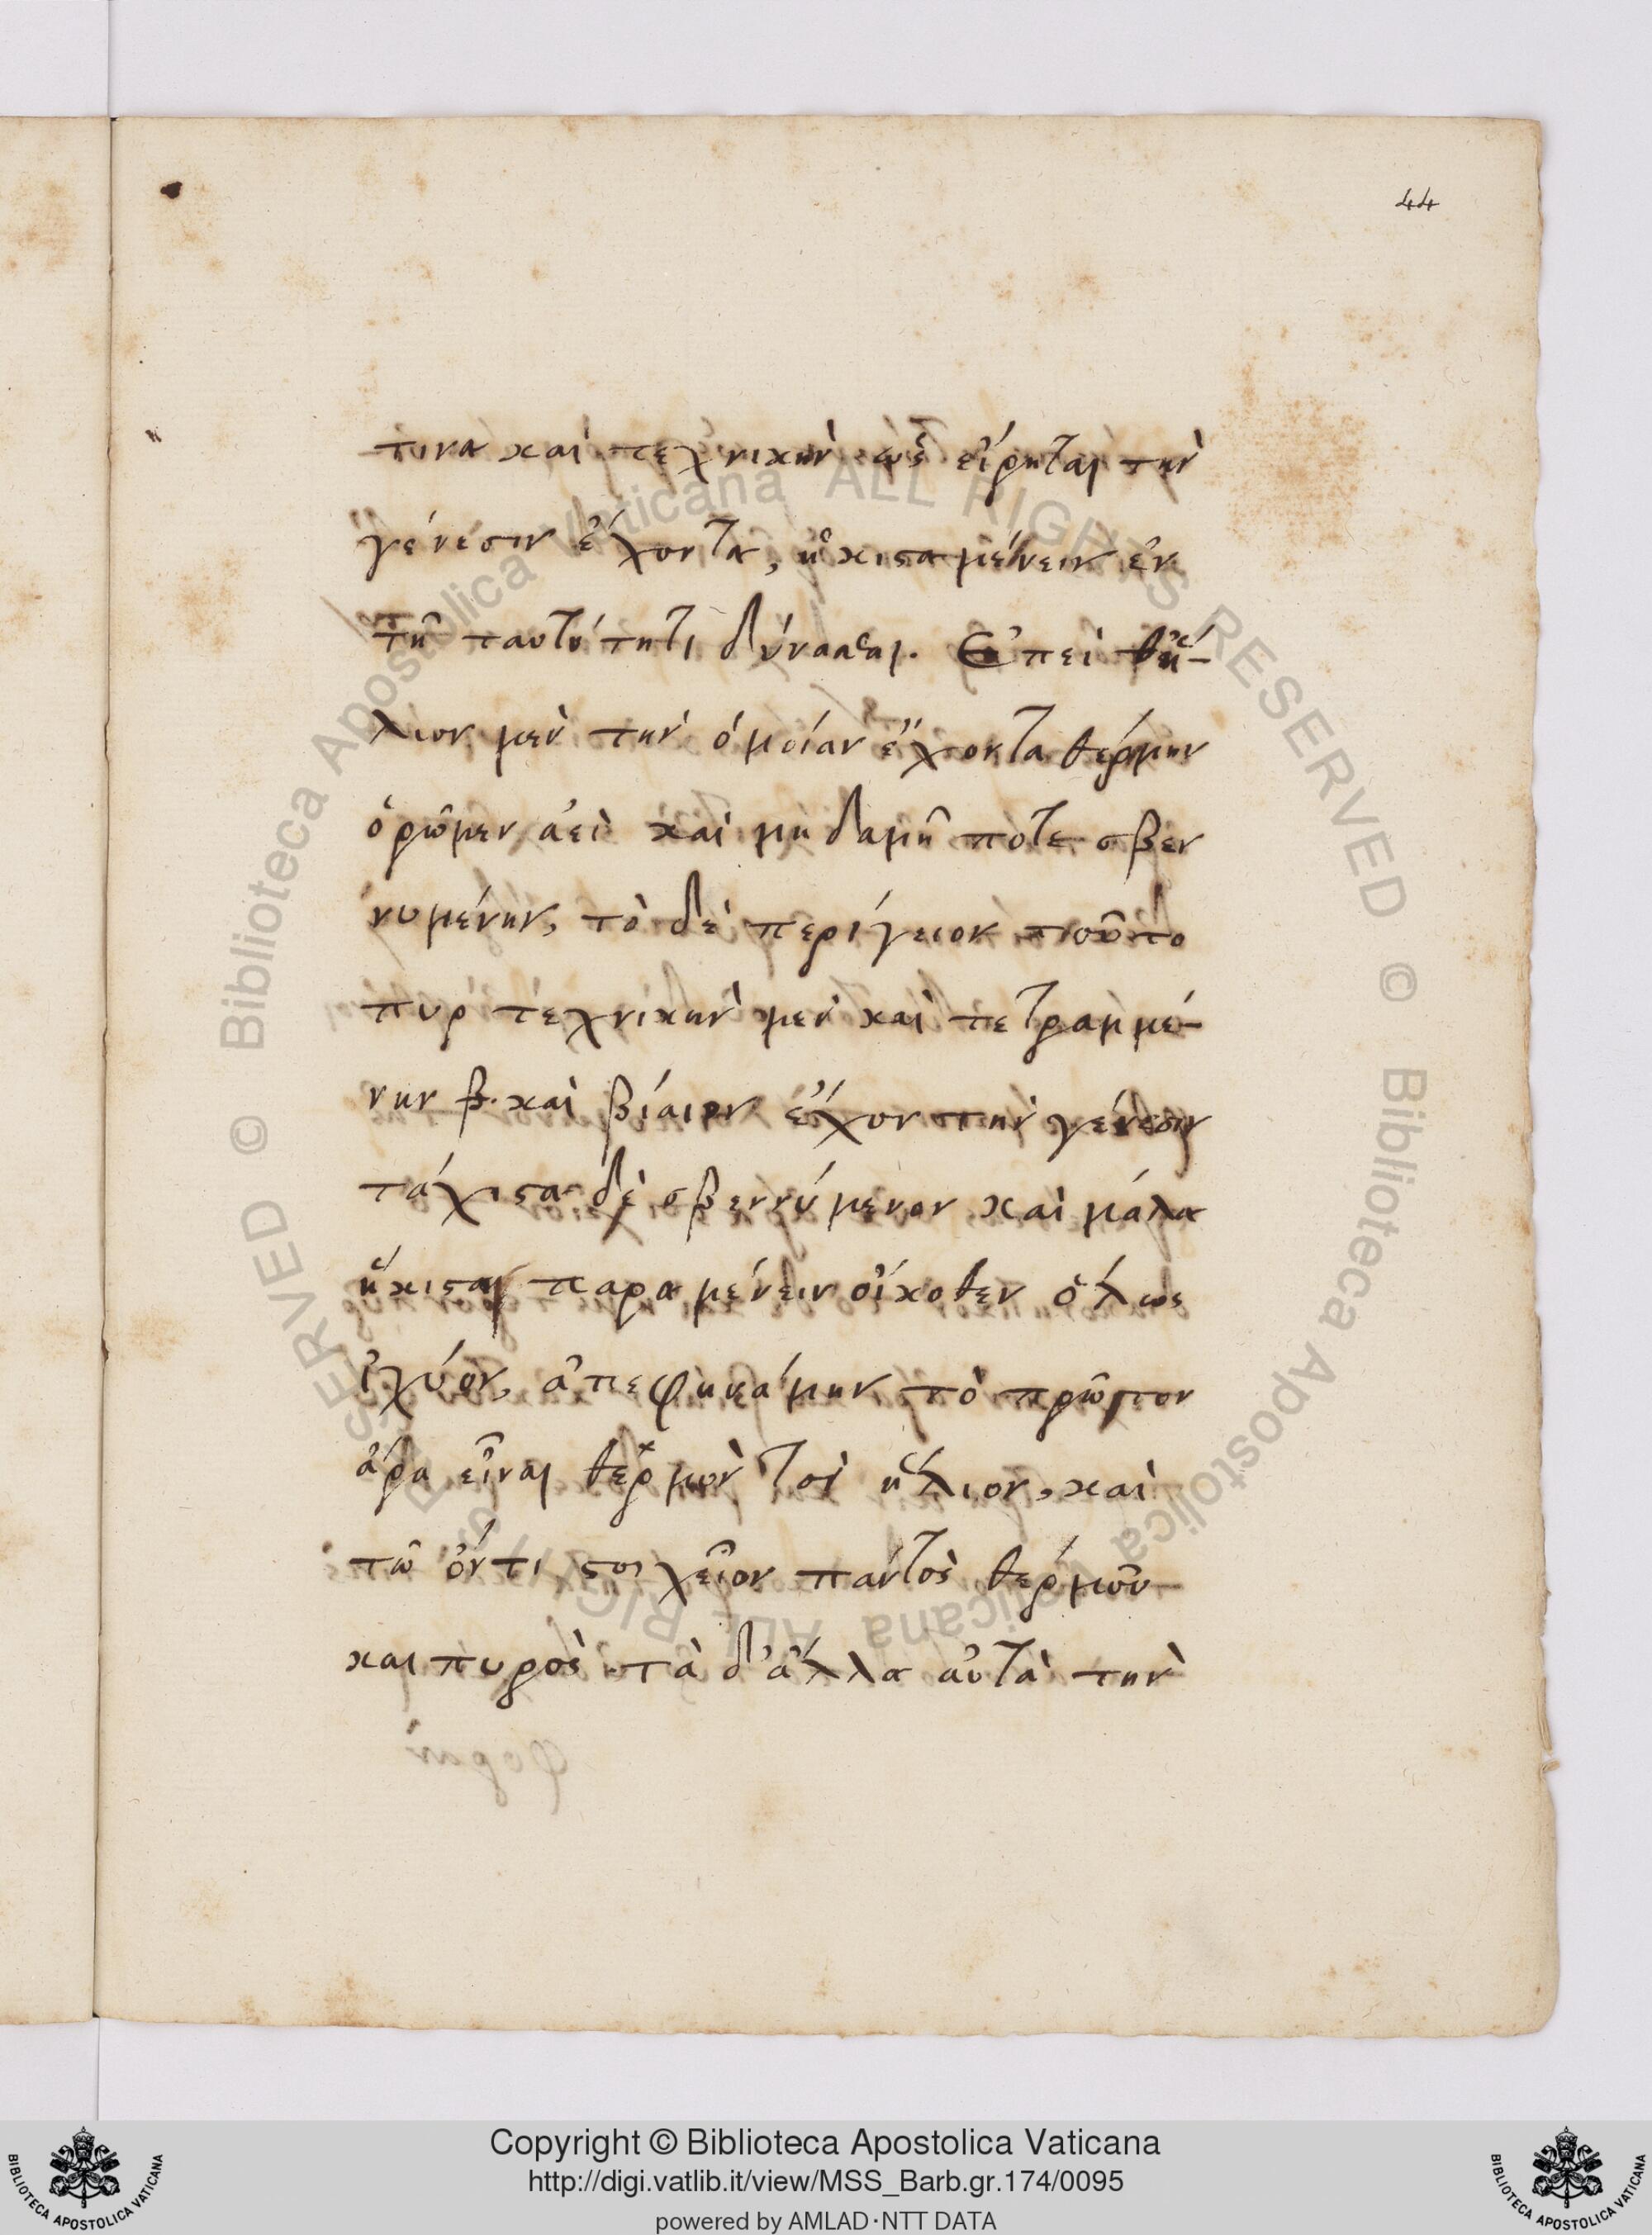 44
τινα καὶ τεχνικὴν ὡς εἴρηται τὴν
γένεσιν ἔχοντα, ἥκιστα μένειν ἐν
τῇ ταυτότητι δύναται. Ἐπεὶ θἥ-
λιον μὲν τὴν ὁμοίαν ἔχοντα θέρμην
ὁρῶμεν ἀεὶ καὶ μηδαμῆ ποτε σβεν
νυμένην, τὸ δὲ περίγειον τοῦτο
πυρ τεχνικὴν μὲν καὶ τετραμμέ-
νην β. καὶ βίαιον ἔχον τὴν γένεσιν
τάχιστα δὲ σβεννύμενον καὶ μάλα
ἥκιστα παραμένειν οἴκοθεν ὅλως
ἰχύον, ἀπεφηνάμην τὸ πρῶτον
ἄρα εἶναι θερμὸν τὸν ἥλιον, καὶ
τῶ ὄντι στοιχεῖον παντὸς θέρμοῦ
και πυρὸς τὰ δ᾽ ἄλλα αὐτὰ τὴν
Copyright © Biblioteca Apostolica Vaticana
http://digi.vatlib.it/view/MSS_Barb.gr.174/0095
powered by AMLAD·NTT DATA
BIBLIOTECA APOSTOLICA VATICANA
BIBLIOTECA APOSTOLICA VATICANA